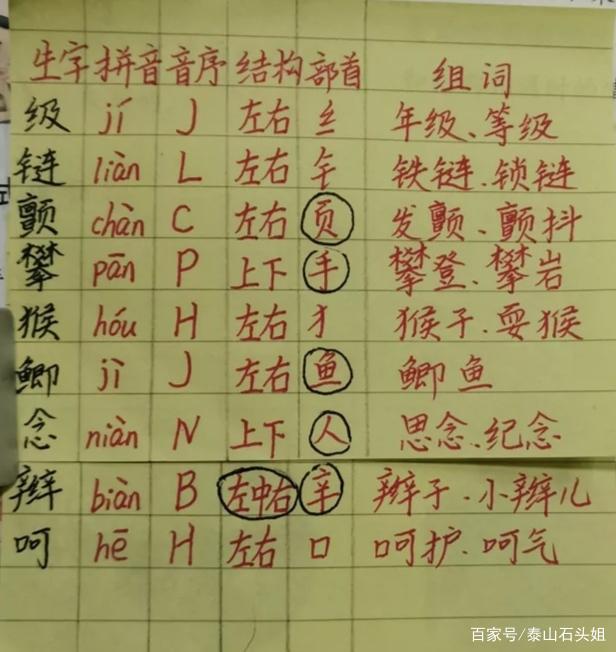 生字 拼音 音序 结构 部首 组词
级 jí J 左右 纟 年级、等级
链 liàn L 左右 钅 铁链、锁链
颤 chàn C 左右 页 发颤、颤抖
攀 pān P 上下 手 攀登、攀岩
猴 hóu H 左右 犭 猴子、耍猴
鲫 jì J 左右 鱼 鲫鱼
念 niàn N 上下 人 思念、纪念
辫 biàn B 左中右 辛 辫子、小辫儿
呵 hē H 左右 口 呵护、呵气
百家号/泰山石头姐